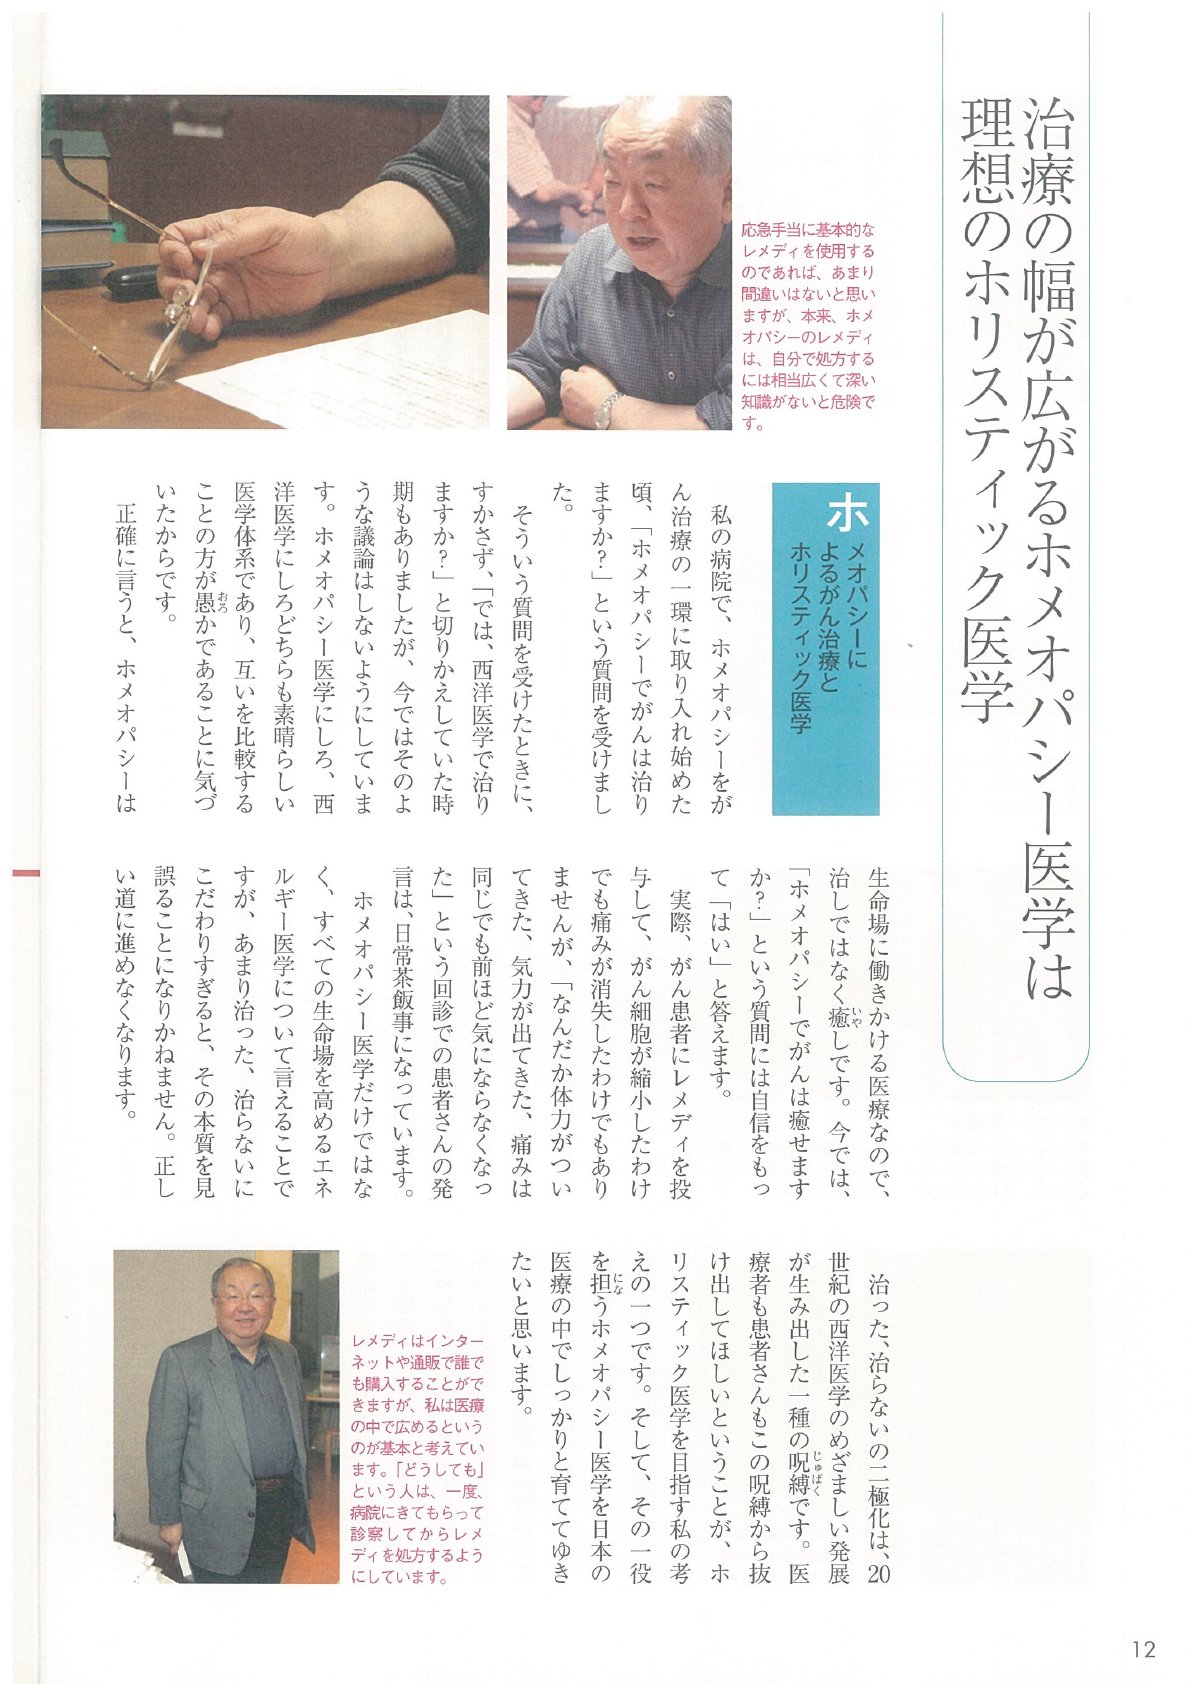 治療の幅が広がるホメオパシー医学は
理想のホリスティック医学
応急手当に基本的な
レメディを使用する
のであれば、あまり
間違いはないと思い
ますが、本来、ホメ
オパシーのレメディ
は、自分で処方する
には相当広くて深い
知識がないと危険で
す。
ホメオパシーに
よるがん治療と
ホリスティック医学
私の病院で、ホメオパシーをが
ん治療の一環に取り入れ始めた
頃、「ホメオパシーでがんは治り
ますか?」という質問を受けまし
た。
そういう質問を受けたときに、
すかさず、「では、西洋医学で治り
ますか?」と切りかえしていた時
期もありましたが、今ではそのよ
うな議論はしないようにしていま
す。ホメオパシー医学にしろ、西
洋医学にしろどちらも素晴らしい
医学体系であり、互いを比較する
ことの方が愚かであることに気づ
いたからです。
正確に言うと、ホメオパシーは
生命場に働きかける医療なので、
治しではなく癒しです。今では、
「ホメオパシーでがんは癒せます
か?」という質問には自信をもっ
て「はい」と答えます。
実際、がん患者にレメディを投
与して、がん細胞が縮小したわけ
でも痛みが消失したわけでもあり
ませんが、「なんだか体力がつい
てきた、気力が出てきた、痛みは
同じでも前ほど気にならなくなっ
た」という回診での患者さんの発
言は、日常茶飯事になっています。
ホメオパシー医学だけではな
く、すべての生命場を高めるエネ
ルギー医学について言えることで
すが、あまり治った、治らないに
こだわりすぎると、その本質を見
誤ることになりかねません。正し
い道に進めなくなります。
治った、治らないの二極化は、20
世紀の西洋医学のめざましい発展
が生み出した一種の呪縛です。医
療者も患者さんもこの呪縛から抜
け出してほしいということが、ホ
リスティック医学を目指す私の考
えの一つです。そして、その一役
を担うホメオパシー医学を日本の
医療の中でしっかりと育ててゆき
たいと思います。
レメディはインター
ネットや通販で誰で
も購入することがで
きますが、私は医療
の中で広めるという
のが基本と考えてい
ます。「どうしても」
という人は、一度、
病院にきてもらって
診察してからレメ
ディを処方するよう
にしています。
12